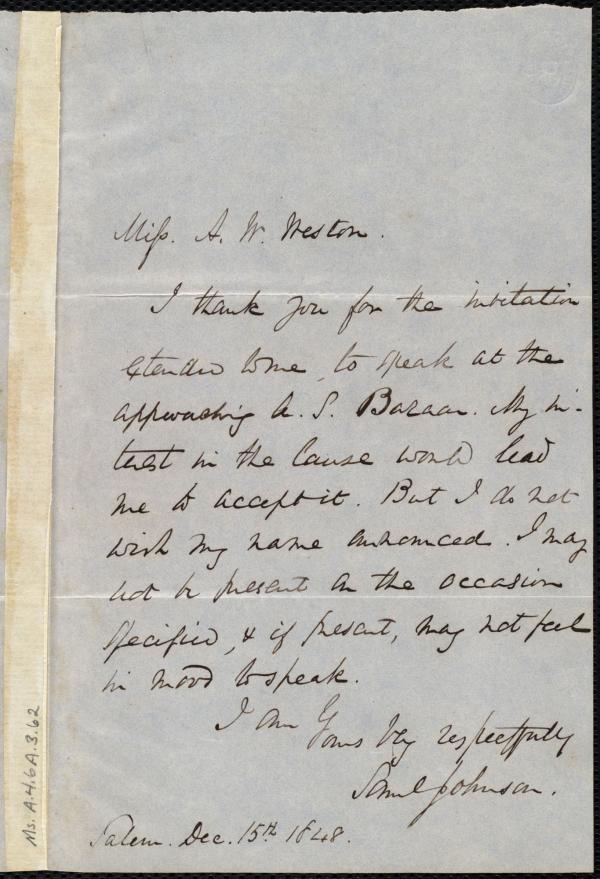 Miss. A. W. Weston.
I thank you for the invitation
extended to me, to speak at the
approaching A. S. Bazaar. My in-
terest in the cause would lead
me to accept it. But I do not
wish my name announced. I may
not be present on the occasion
specified, & if present, may not feel
in mood to speak.
I am Yours very respectfully
Saml Johnson.
Salem. Dec. 15th 1848.
Ms. A.4.6A.3.62